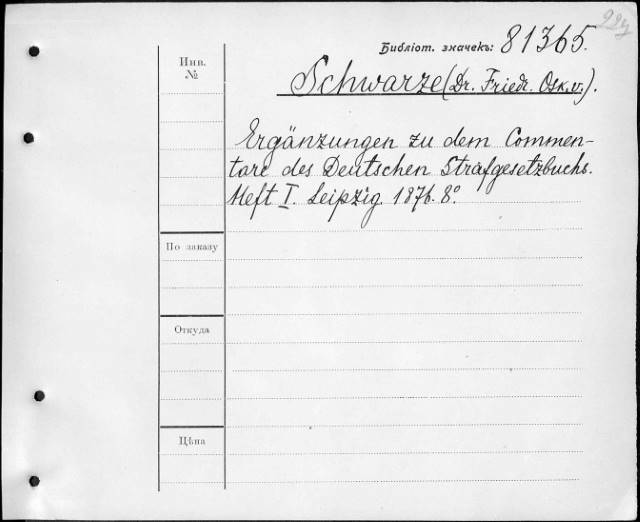 Библіот. значекъ: 81365.
Инв.
№
Schwarze (Dr. Friedr. Osk. v.).
Ergänzungen zu dem Commen-
tare des Deutschen Strafgesetzbuchs.
Heft I. Leipzig. 1876. 8º.
По заказу
Откуда
Цѣна